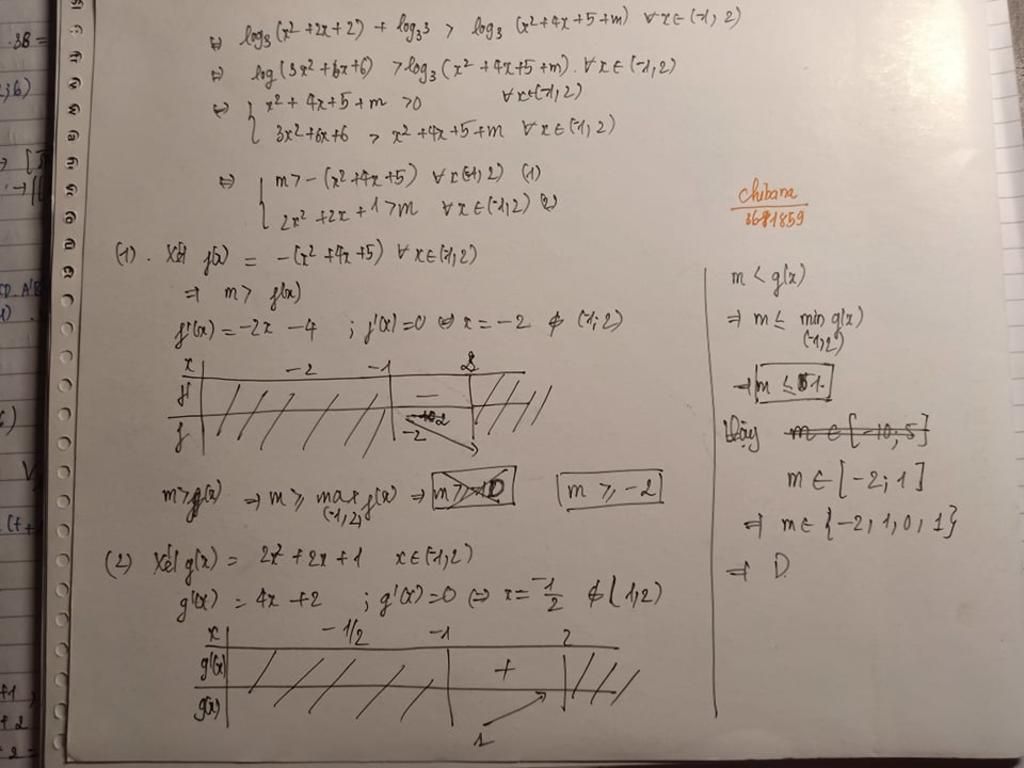 ⇔ log₃(x²+2x+2) + log₃3 > log₃(x²+4x+5+m) ∀x∈(-1,2)
⇔ log(3x²+6x+6) > log₃(x²+4x+5+m). ∀x∈(-1,2)
⇔ { x²+4x+5+m >0 ∀x∈(-1,2)
3x²+6x+6 > x²+4x+5+m ∀x∈(-1,2)
⇔ { m>-(x²+4x+5) ∀x∈(-1,2) (1)
2x²+2x+1>m ∀x∈(-1,2) (2)
(1). Xét f(x) = -(x²+4x+5) ∀x∈(-1,2)
⇒ m> f(x)
f'(x) = -2x-4 ; f'(x)=0 ⇔ x=-2 ∉ (-1;2)
x -2 -1 2
f' -
f -2
m>g(x) ⇒ m ≥ max f(x) ⇒ m ≥ -10 m ≥ -2
(-1,2)
(2) Xét g(x) = 2x²+2x+1 x∈(-1,2)
g'(x) = 4x+2 ; g'(x)=0 ⇔ x=-1/2 ∉(1,2)
x -1/2 -1 2
g'(x) +
g(x) 1
chibana
3681859
m < g(x)
⇒ m ≤ min g(x)
(-1,2)
⇒ m ≤ 1.
Vậy m ∈ [-10,5]
m ∈ [-2;1]
⇒ m∈ {-2,1,0,1}
⇒ D.